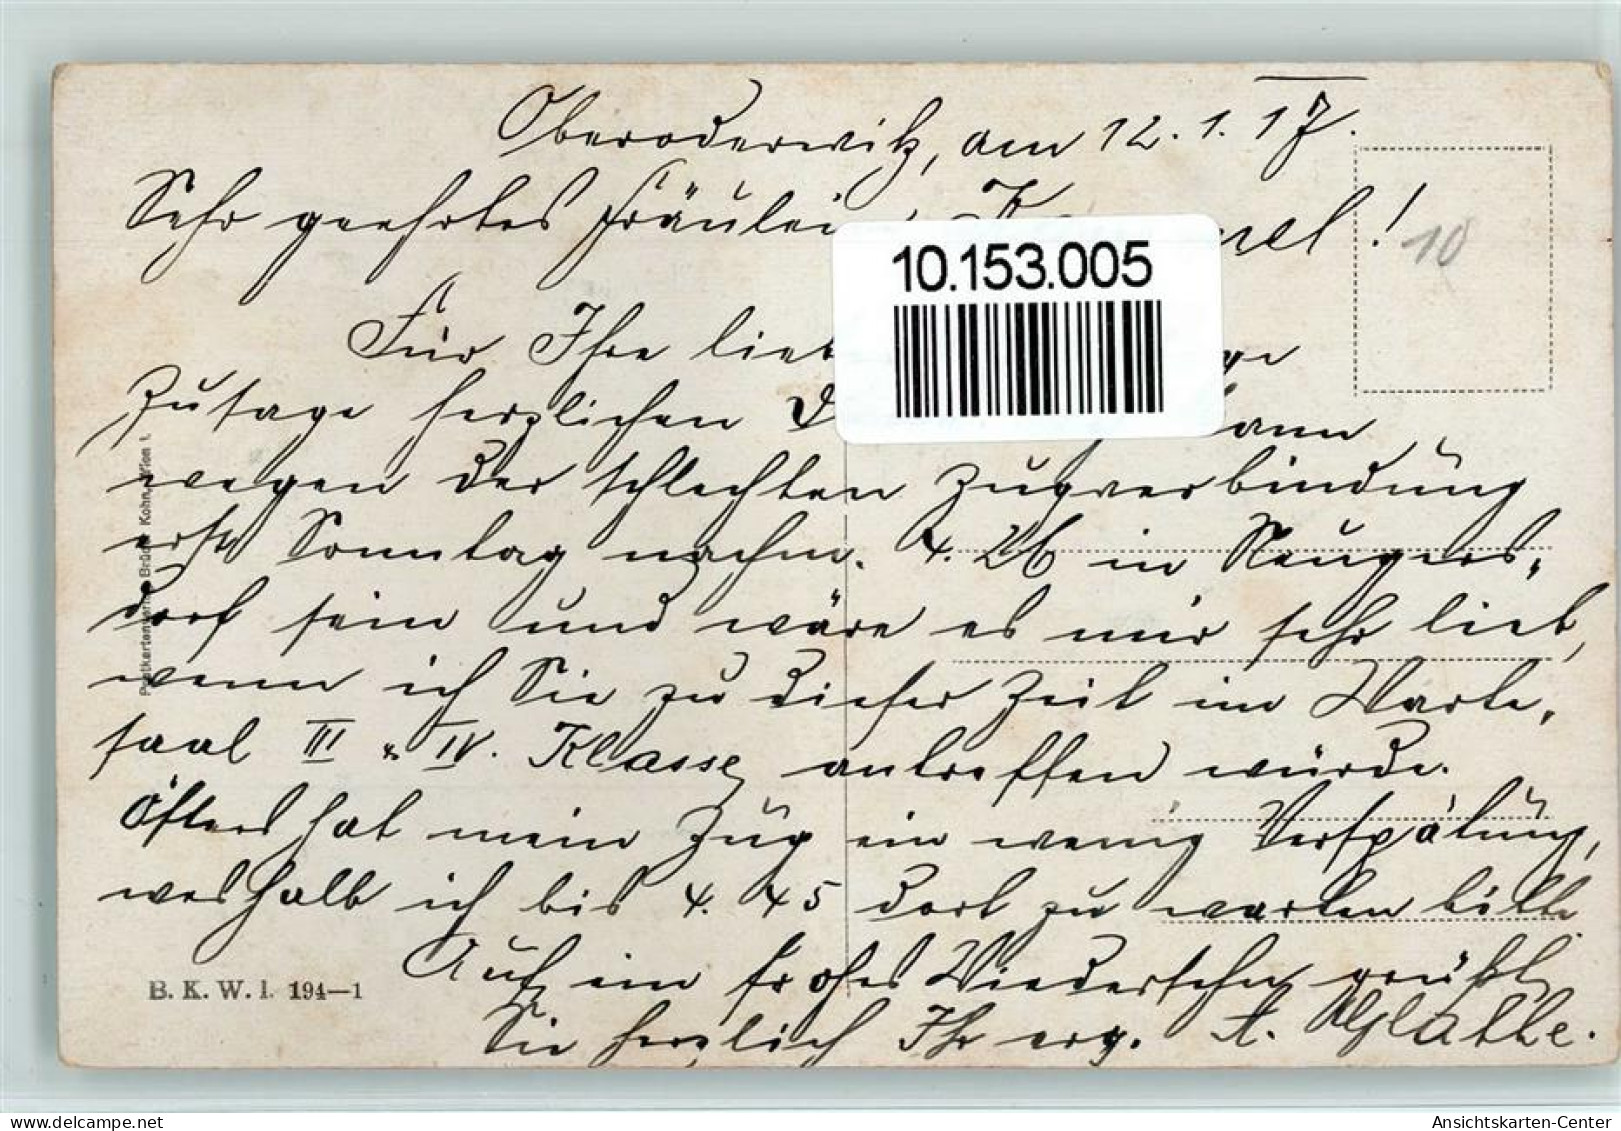 Oberoderwitz, am 12.1.17.
Sehr geehrtes Fräulein !
10
10.153.005
Für Ihre
Zusage herzlichen
wegen der schlechten Zugverbindung
erst Sonntag nachm. 4.26 in Neugers-
dorf sein und wäre es mir sehr lieb,
wenn ich Sie zu dieser Zeit im Warte-
saal III u. IV. Klasse antreffen würde.
Öfters hat mein Zug ein wenig Verspätung,
weshalb ich bis 4.45 dort zu warten bitte.
Auf ein frohes Wiedersehn grüßt
Sie herzlich Ihr erg. A. Glathe.
Postkartenverlag Brüder Kohn, Wien I.
B. K. W. I. 194-1
AnsichtskartenList.com
Ansichtskarten-Center